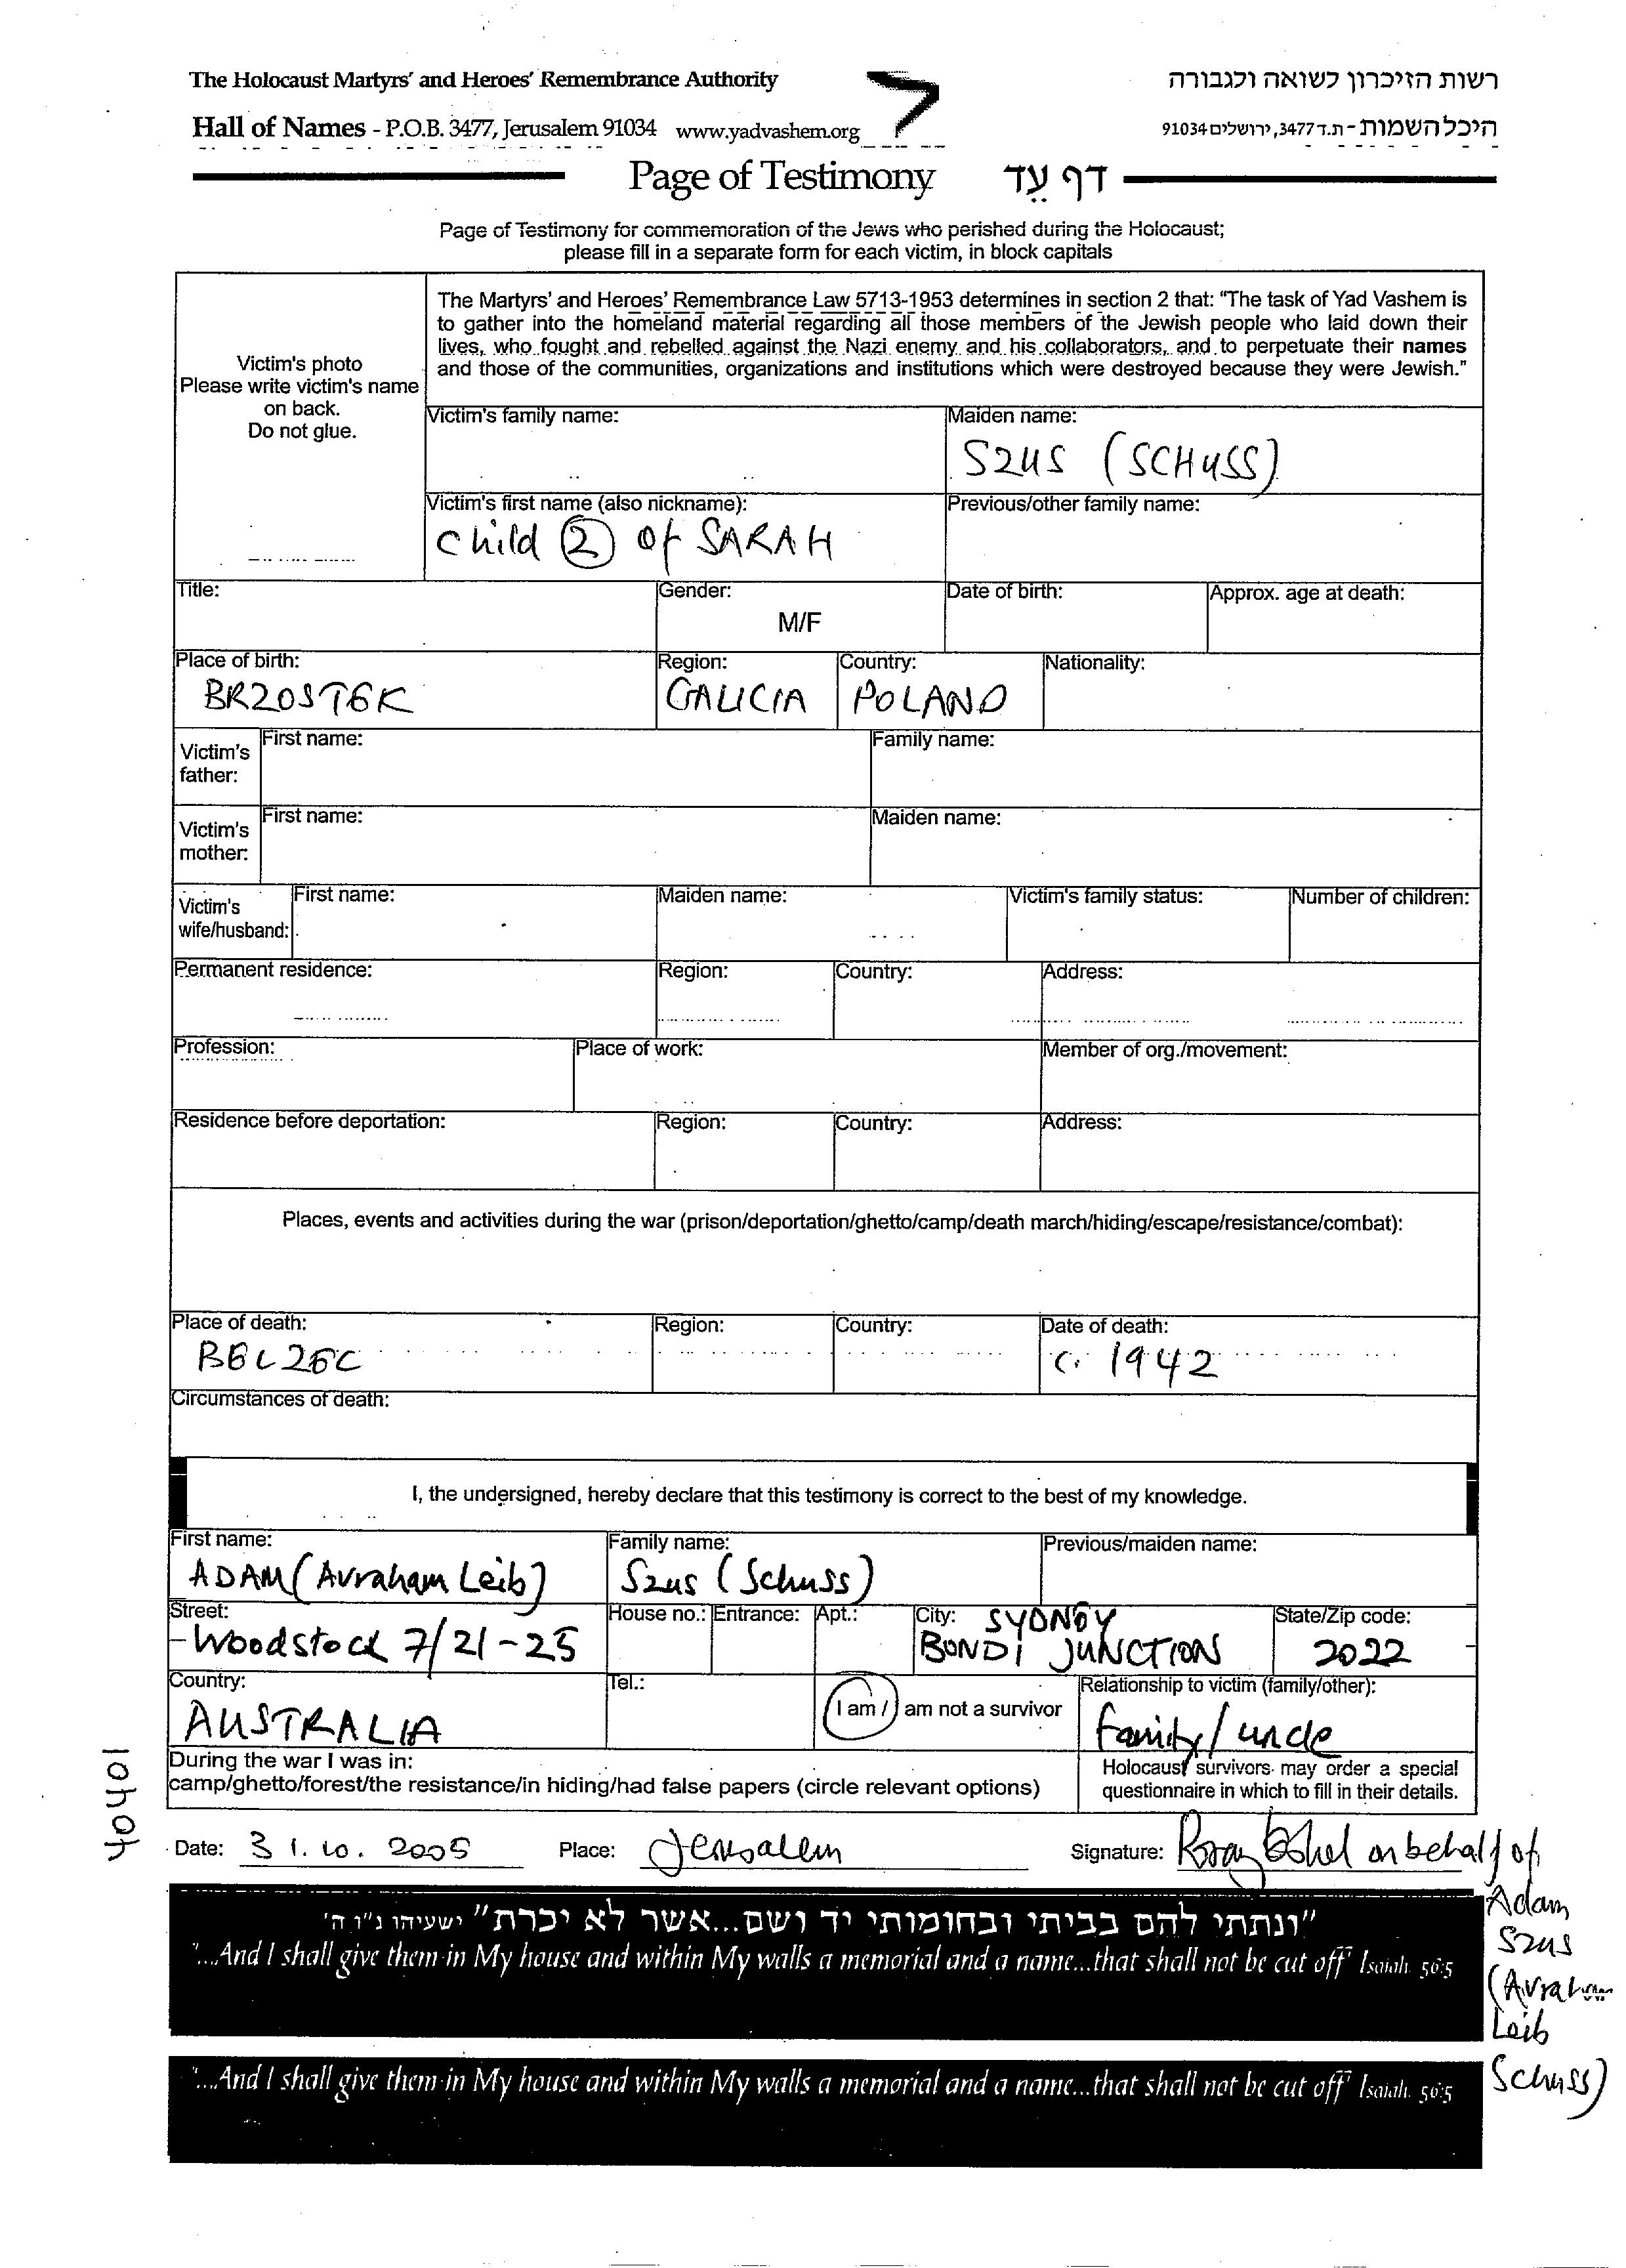 The Holocaust Martyrs' and Heroes' Remembrance Authority
רשות הזיכרון לשואה ולגבורה
Hall of Names - P.O.B. 3477, Jerusalem 91034 www.yadvashem.org
היכל השמות - ת.ד 3477, ירושלים 91034
Page of Testimony דף עֵד
Page of Testimony for commemoration of the Jews who perished during the Holocaust;
please fill in a separate form for each victim, in block capitals
Victim's photo
Please write victim's name
on back.
Do not glue.
The Martyrs' and Heroes' Remembrance Law 5713-1953 determines in section 2 that: "The task of Yad Vashem is
to gather into the homeland material regarding all those members of the Jewish people who laid down their
lives, who fought and rebelled against the Nazi enemy and his collaborators, and to perpetuate their names
and those of the communities, organizations and institutions which were destroyed because they were Jewish."
Victim's family name:
Maiden name:
SZUS (SCHUSS)
Victim's first name (also nickname):
Child 2 of SARAH
Previous/other family name:
Title:
Gender:
M/F
Date of birth:
Approx. age at death:
Place of birth:
BRZOSTEK
Region:
GALICIA
Country:
POLAND
Nationality:
Victim's
father:
First name:
Family name:
Victim's
mother:
First name:
Maiden name:
Victim's
wife/husband:
First name:
Maiden name:
Victim's family status:
Number of children:
Permanent residence:
Region:
Country:
Address:
Profession:
Place of work:
Member of org./movement:
Residence before deportation:
Region:
Country:
Address:
Places, events and activities during the war (prison/deportation/ghetto/camp/death march/hiding/escape/resistance/combat):
Place of death:
BELZEC
Region:
Country:
Date of death:
c. 1942
Circumstances of death:
I, the undersigned, hereby declare that this testimony is correct to the best of my knowledge.
First name:
ADAM (Avraham Leib)
Family name:
Szus (Schuss)
Previous/maiden name:
Street:
Woodstock 7/21-25
House no.:
Entrance:
Apt.:
City: SYDNEY
BONDI JUNCTION
State/Zip code:
2022
Country:
AUSTRALIA
Tel.:
I am / am not a survivor
Relationship to victim (family/other):
family/uncle
During the war I was in:
camp/ghetto/forest/the resistance/in hiding/had false papers (circle relevant options)
Holocaust survivors may order a special
questionnaire in which to fill in their details.
Date: 31.10.2005
Place: Jerusalem
Signature: on behalf of
Adam
Szus
(Avraham
Leib
Schuss)
"ונתתי להם בביתי ובחומותי יד ושם...אשר לא יכרת" ישעיהו נ"ו ה'
"...And I shall give them in My house and within My walls a memorial and a name...that shall not be cut off" Isaiah 56:5
"...And I shall give them in My house and within My walls a memorial and a name...that shall not be cut off" Isaiah 56:5